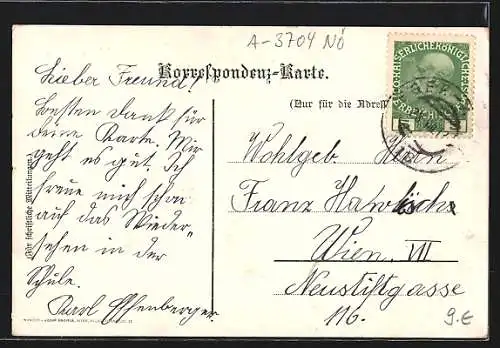 A-3704 NÖ
Korrespondenz-Karte.
(Nur für die Adresse
Lieber Freund!
Besten Dank für
deine Karte. Mir
geht es gut. Ich
freue mich schon
auf das Wieder-
sehen in der
Schule.
Karl Offenberger.
(Für schriftliche Mitteilungen.)
Wohlgeb. Herrn
Franz
Wien VII
Neustiftgasse
116.
9.E